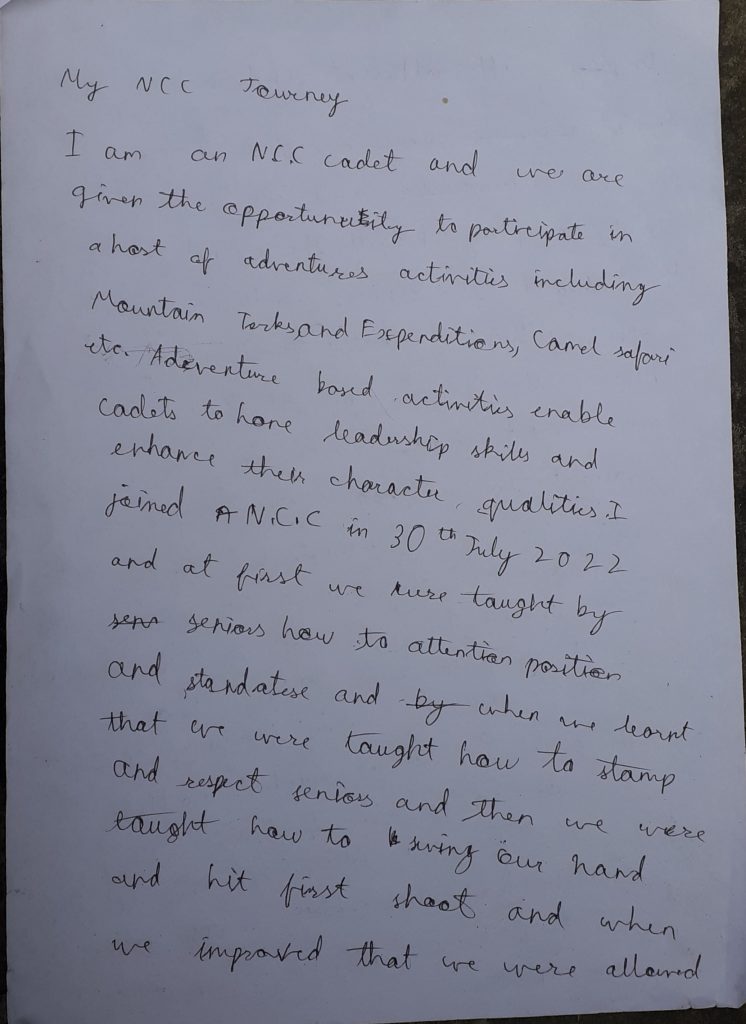 My NCC Journey
I am an N.C.C cadet and we are
given the opportunity to participate in
a host of adventures activities including
Mountain Terks, and Expenditions, Camel safari
etc. Adeventure based activities enable
cadets to hone leadership skills and
enhance their character qualities. I
joined A N.C.C in 30th July 2022
and at first we were taught by
seniors how to attention position
and standatese and by when we learnt
that we were taught how to stamp
and respect seniors and then we were
taught how to swing our hand
and hit first shoot and when
we improved that we were allowed